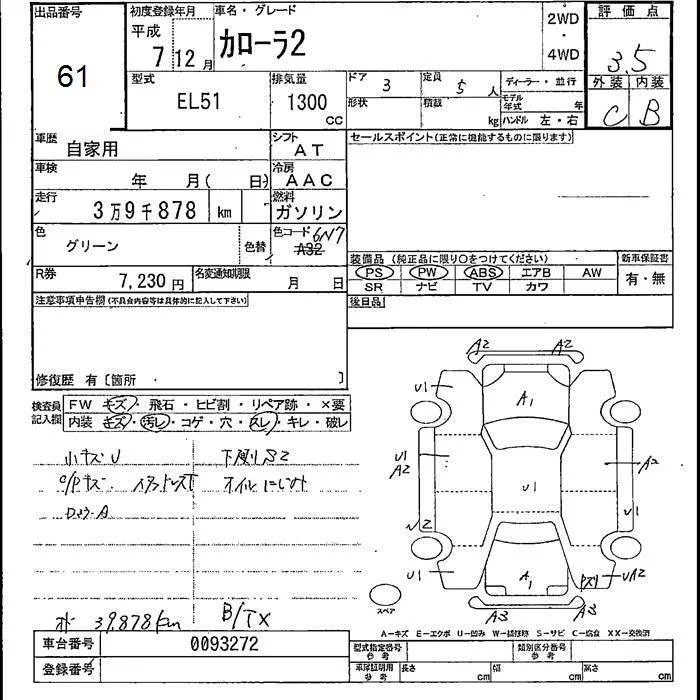 出品番号
61
初度登録年月
平成
7 12月
車名・グレード
カローラ2
2WD
・
4WD
評価点
3.5
外装 内装
C B
型式
EL51
排気量
1300
CC
ドア 3
定員 5人
ディーラー・並行
形状
積載 kg
モデル年式 年
ハンドル 左・右
車歴
自家用
シフト
AT
セールスポイント(正常に機能するものに限ります)
車検
年 月( 日)
冷房
AAC
走行
3万9千878 km
燃料
ガソリン
色
グリーン
色替
色コード 6N7
A32
装備品 (純正品に限り○をつけてください)
新車保証書
PS PW ABS エアB AW
有・無
SR ナビ TV カワ
R券
7,230円
名変通知期限
月 日
後日品
注意事項申告欄(不具合内容等は具体的に記入して下さい)
修復歴 有[箇所 ]
検査員記入欄
FW キズ・飛石・ヒビ割・リペア跡・×要
内装 キズ・汚レ・コゲ・穴・スレ・キレ・破レ
小キズU
下廻りS2
オイルにじみ
39,878km
B/TX
A2 A2
U1
A1
U1
A2
A2
U1
U1
U1
A1
UA2
A3 A3
スペア
A-キズ E-エクボ U-凹み W-補修跡 S-サビ C-腐食 XX-交換済
車台番号
0093272
登録番号
型式指定番号
参考
類別区分番号
参考
車庫証明用
参考
長さ cm
幅 cm
高さ cm